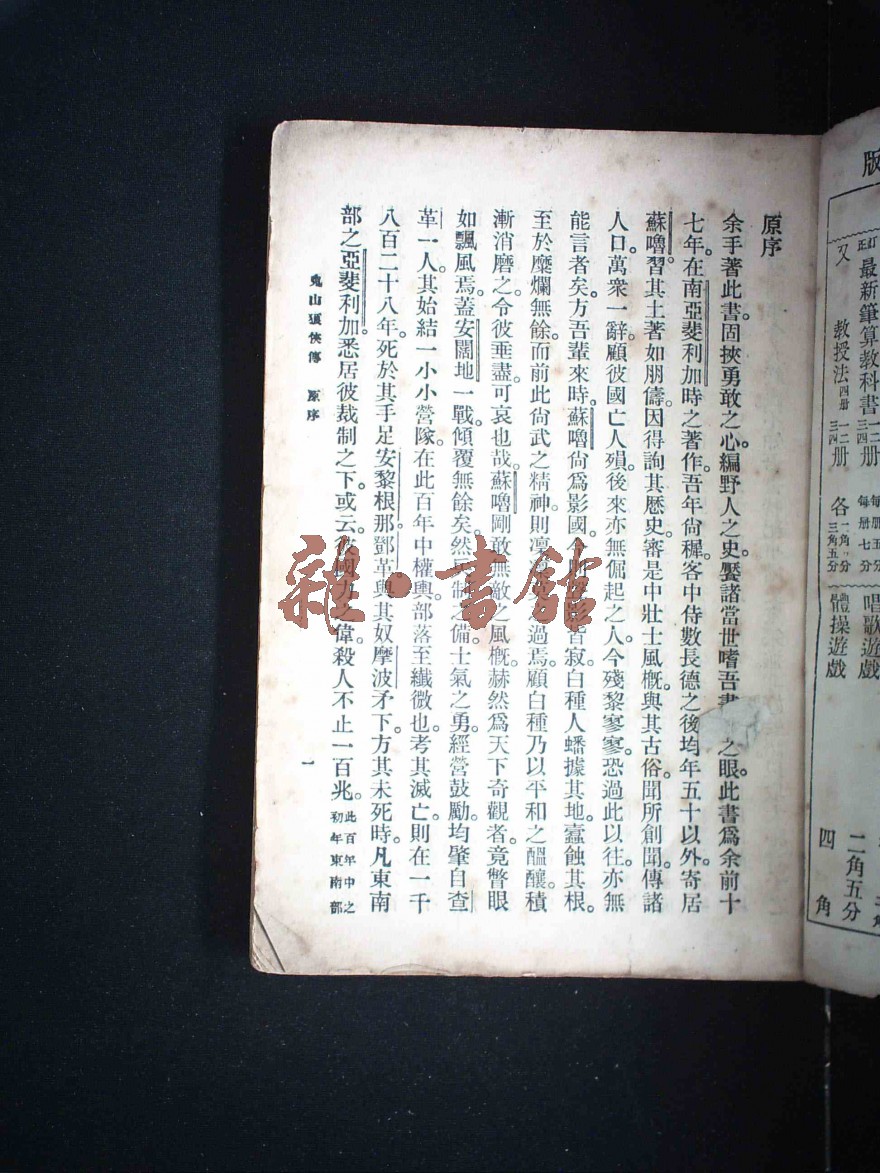 原序
余手著此書。固挾勇敢之心。編野人之史。饜諸當世嗜吾書 之眼。此書爲余前十
七年。在南亞斐利加時之著作。吾年尙穉。客中侍數長德之後。均年五十以外。寄居
蘇嚕。習其土著如朋儔。因得詢其歷史。審是中壯士風概。與其古俗。聞所創聞。傳諸
人口。萬衆一辭。顧彼國亡人殞。後來亦無倔起之人。今殘黎寥寥。恐過此以往。亦無
能言者矣。方吾輩來時。蘇嚕尙爲影國。今則 影皆寂。白種人蟠據其地。蠧蝕其根。
至於糜爛無餘。而前此尙武之精神。則凛 過焉。顧白種乃以平和之醞釀。積
漸消磨之。令彼垂盡。可哀也哉。蘇嚕剛敢無敵之風概。赫然爲天下奇觀者。竟瞥眼
如飄風焉。蓋安闊地一戰。傾覆無餘矣。然 制之備。士氣之勇。經營鼓勵。均肇自查
革一人。其始結一小小營隊。在此百年中權輿。部落至纖微也。考其滅亡。則在一千
八百二十八年。死於其手足安黎根那。鄧革與其奴摩波矛下。方其未死時。凡東南
部之亞斐利加。悉居彼裁制之下。或云。彼國力之偉。殺人不止一百兆。此百年中之
初年東南部
鬼山狼俠傳 原序
一
版
訂正
最新筆算教科書
一二三四
册
每册五分
每册七分
又
教授法
四册
一二三四
册
各
二角
三角五分
唱歌遊戲
體操遊戲
二角五分
四角
雜·書館